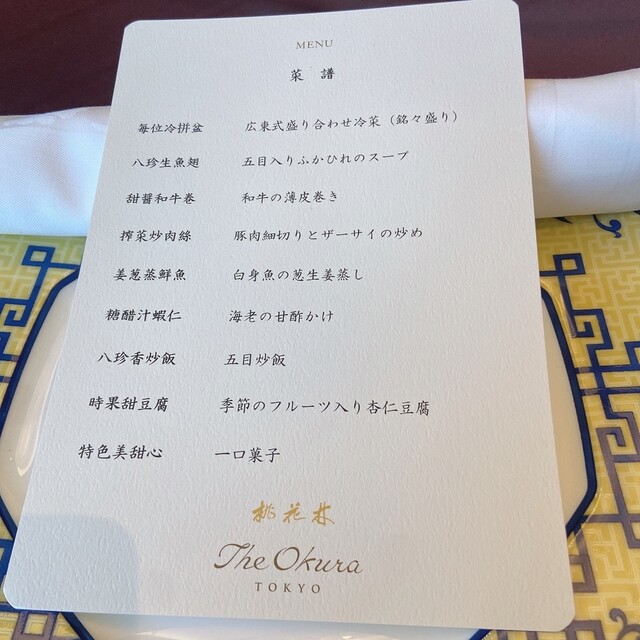 MENU
菜 譜
每位冷拼盆 広東式盛り合わせ冷菜（銘々盛り）
八珍生魚翅 五目入りふかひれのスープ
甜醤和牛巻 和牛の薄皮巻き
搾菜炒肉絲 豚肉細切りとザーサイの炒め
姜葱蒸鮮魚 白身魚の葱生姜蒸し
糖醋汁蝦仁 海老の甘酢かけ
八珍香炒飯 五目炒飯
時果甜豆腐 季節のフルーツ入り杏仁豆腐
特色美甜心 一口菓子
桃花林
The Okura
TOKYO